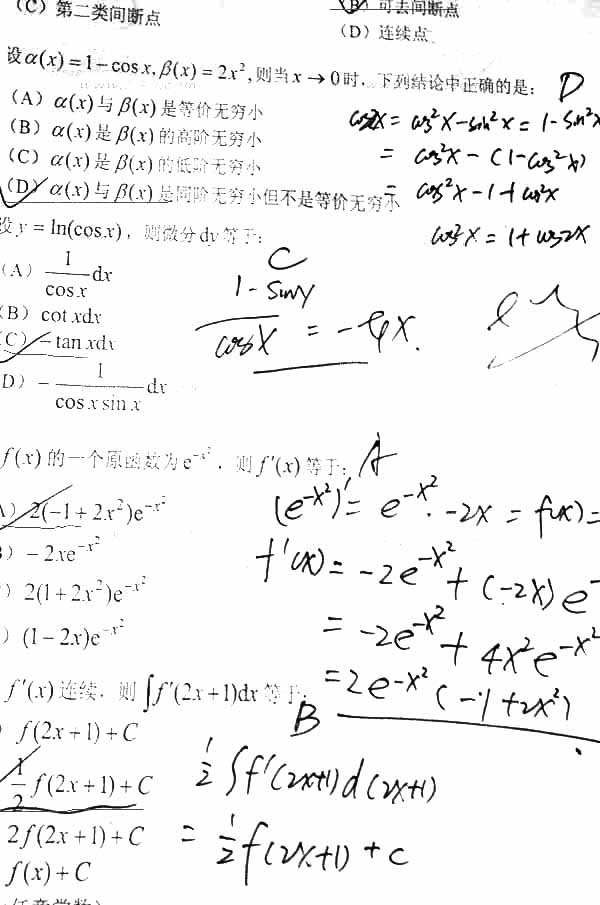 (C) 第二类间断点
(B) 可去间断点
(D) 连续点
设α(x)=1−cosx, β(x)=2x², 则当 x→0时, 下列结论中正确的是: D
(A) α(x)与β(x)是等价无穷小
(B) α(x)是β(x)的高阶无穷小
(C) α(x)是β(x)的低阶无穷小
(D) α(x)与β(x)是同阶无穷小但不是等价无穷小
cos2x = cos²x−sin²x = 1−sin²x
= cos²x − (1−cos²x)
= cos²x −1 + cos²x
cos²x = 1+cos2x
设 y=ln(cosx), 则微分dy等于: C
(A) 1/cosx dx
(B) cot xdx
(C) −tan xdx
(D) − 1/(cosxsinx) dx
1·−sinx/cosx = −tgx.
f(x)的一个原函数为e^(−x²), 则f′(x)等于: A
A) 2(−1+2x²)e^(−x²)
B) −2xe^(−x²)
) 2(1+2x²)e^(−x²)
) (1−2x)e^(−x²)
(e^(−x²))′ = e^(−x²)·−2x = f(x) =
f′(x) = −2e^(−x²) + (−2x)e^−
= −2e^(−x²) + 4x²e^(−x²)
= 2e^(−x²)(−1+2x²)
f′(x)连续, 则∫f′(2x+1)dx等于: B
) f(2x+1)+C
1/2 f(2x+1)+C
2f(2x+1)+C
f(x)+C
1/2 ∫f′(2x+1)d(2x+1)
= 1/2 f(2x+1) + C